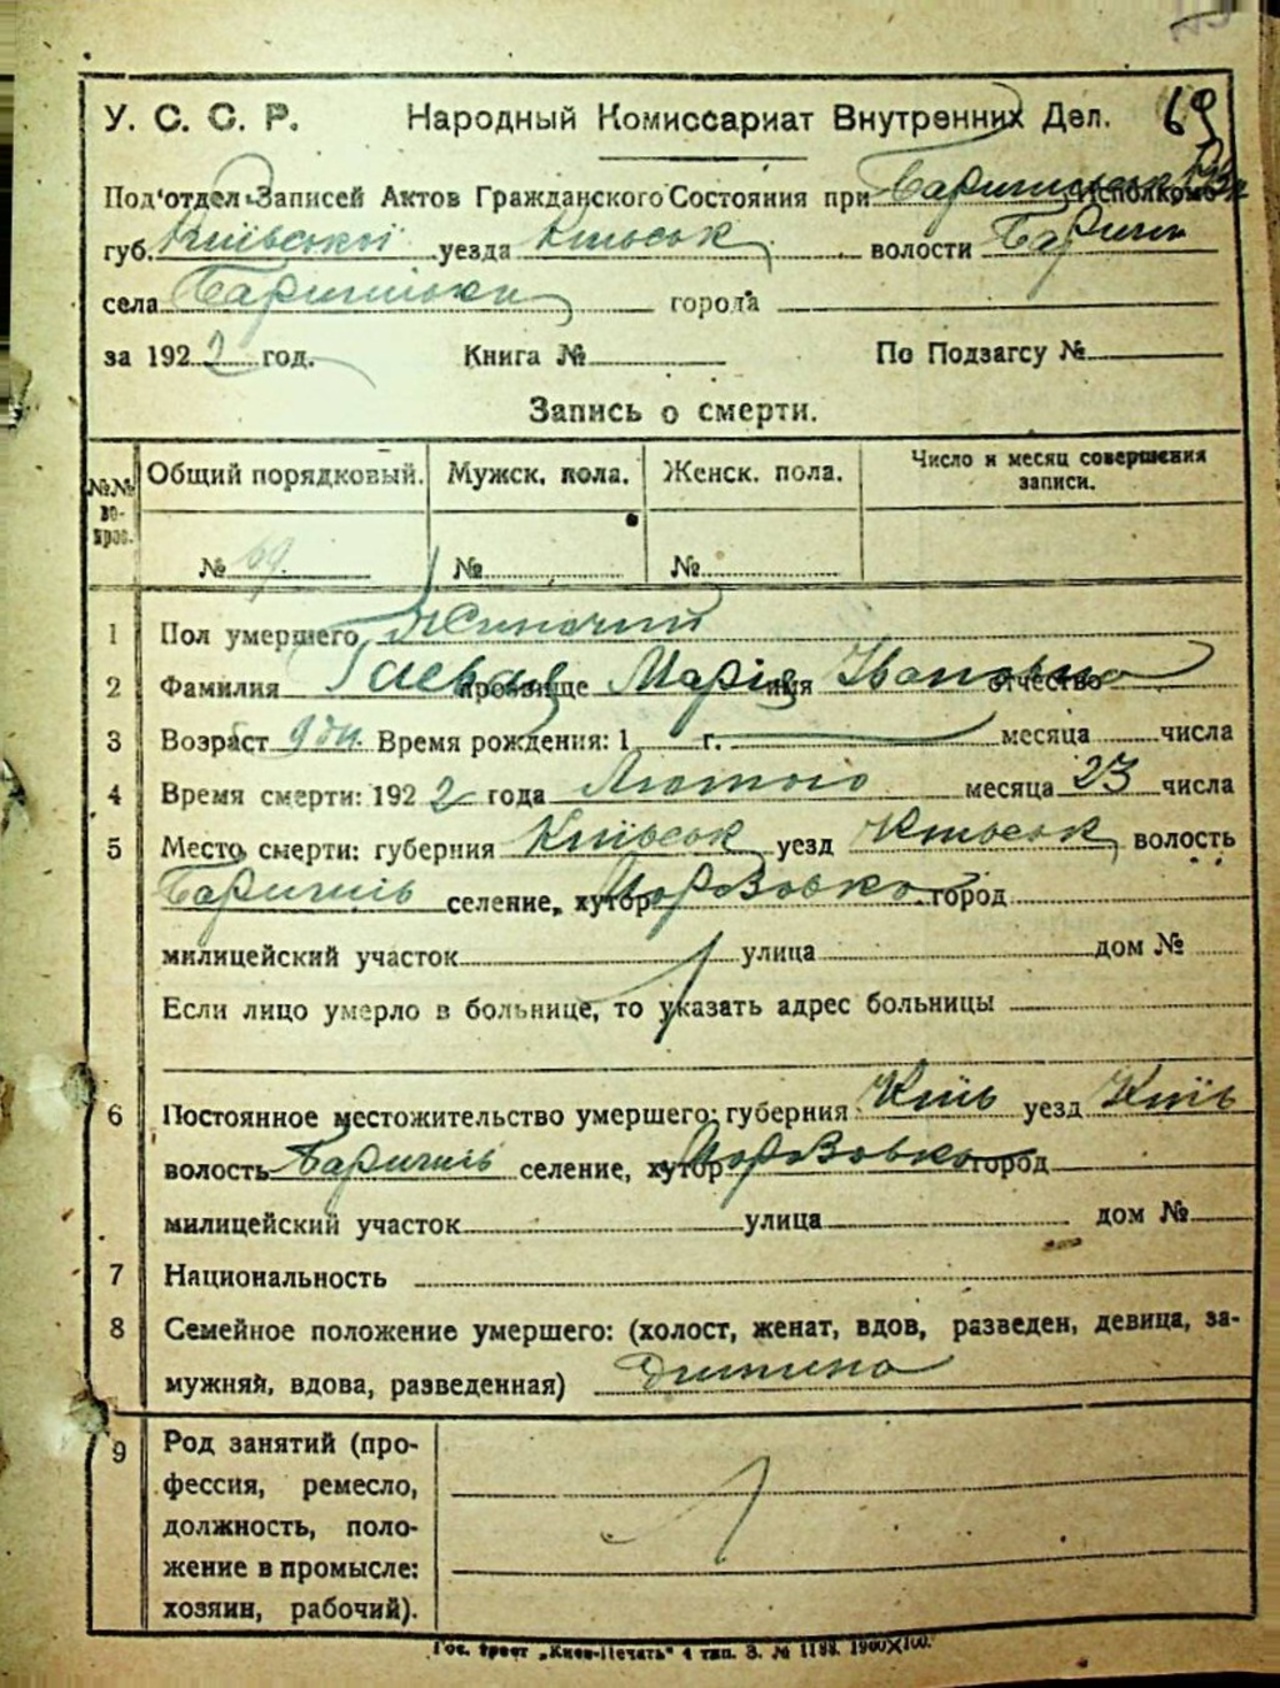 69
У. С. С. Р. Народный Комиссариат Внутренних Дел.
Под'отдел Записей Актов Гражданского Состояния при Исполкоме
губ. Київської уезда Київськ волости Баришп
села Баришівки города
за 1922 год. Книга № По Подзагсу №
Запись о смерти.
№№ вопрос. Общий порядковый. Мужск. пола. Женск. пола. Число и месяц совершения записи.
№ 69. № №
1 Пол умершего Жиночий
2 Фамилия прозвище Марія имя Івановна отчество
3 Возраст 9 дн. Время рождения: 1 г. месяца числа
4 Время смерти: 1922 года Лютого месяца 23 числа
5 Место смерти: губерния Київськ уезд Київськ волость
Баришів селение, хутор город
милицейский участок улица дом №
Если лицо умерло в больнице, то указать адрес больницы
6 Постоянное местожительство умершего: губерния Київ уезд Київ
волость Баришів селение, хутор город
милицейский участок улица дом №
7 Национальность
8 Семейное положение умершего: (холост, женат, вдов, разведен, девица, за-
мужняй, вдова, разведенная) Дитина
9 Род занятий (про-
фессия, ремесло,
должность, поло-
жение в промысле:
хозяин, рабочий).
Гос. трест „Киев-Печать" 4 тип. З. № 1198. 1900X100.